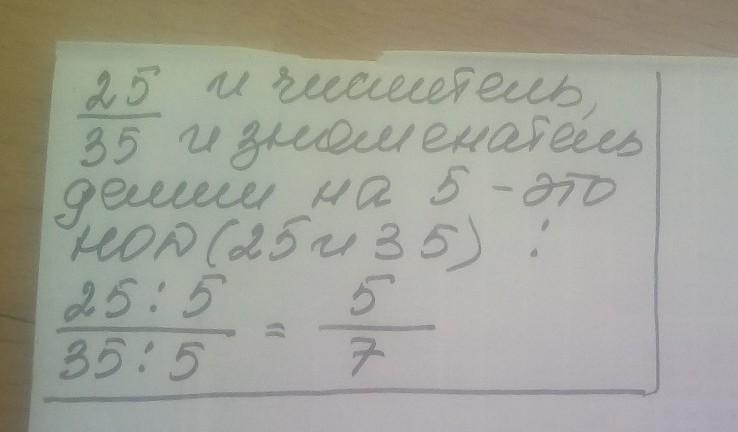 25 и числитель,
35 и знаменатель
делим на 5 - это
НОД (25 и 35) :
25 : 5 = 5
35 : 5 7